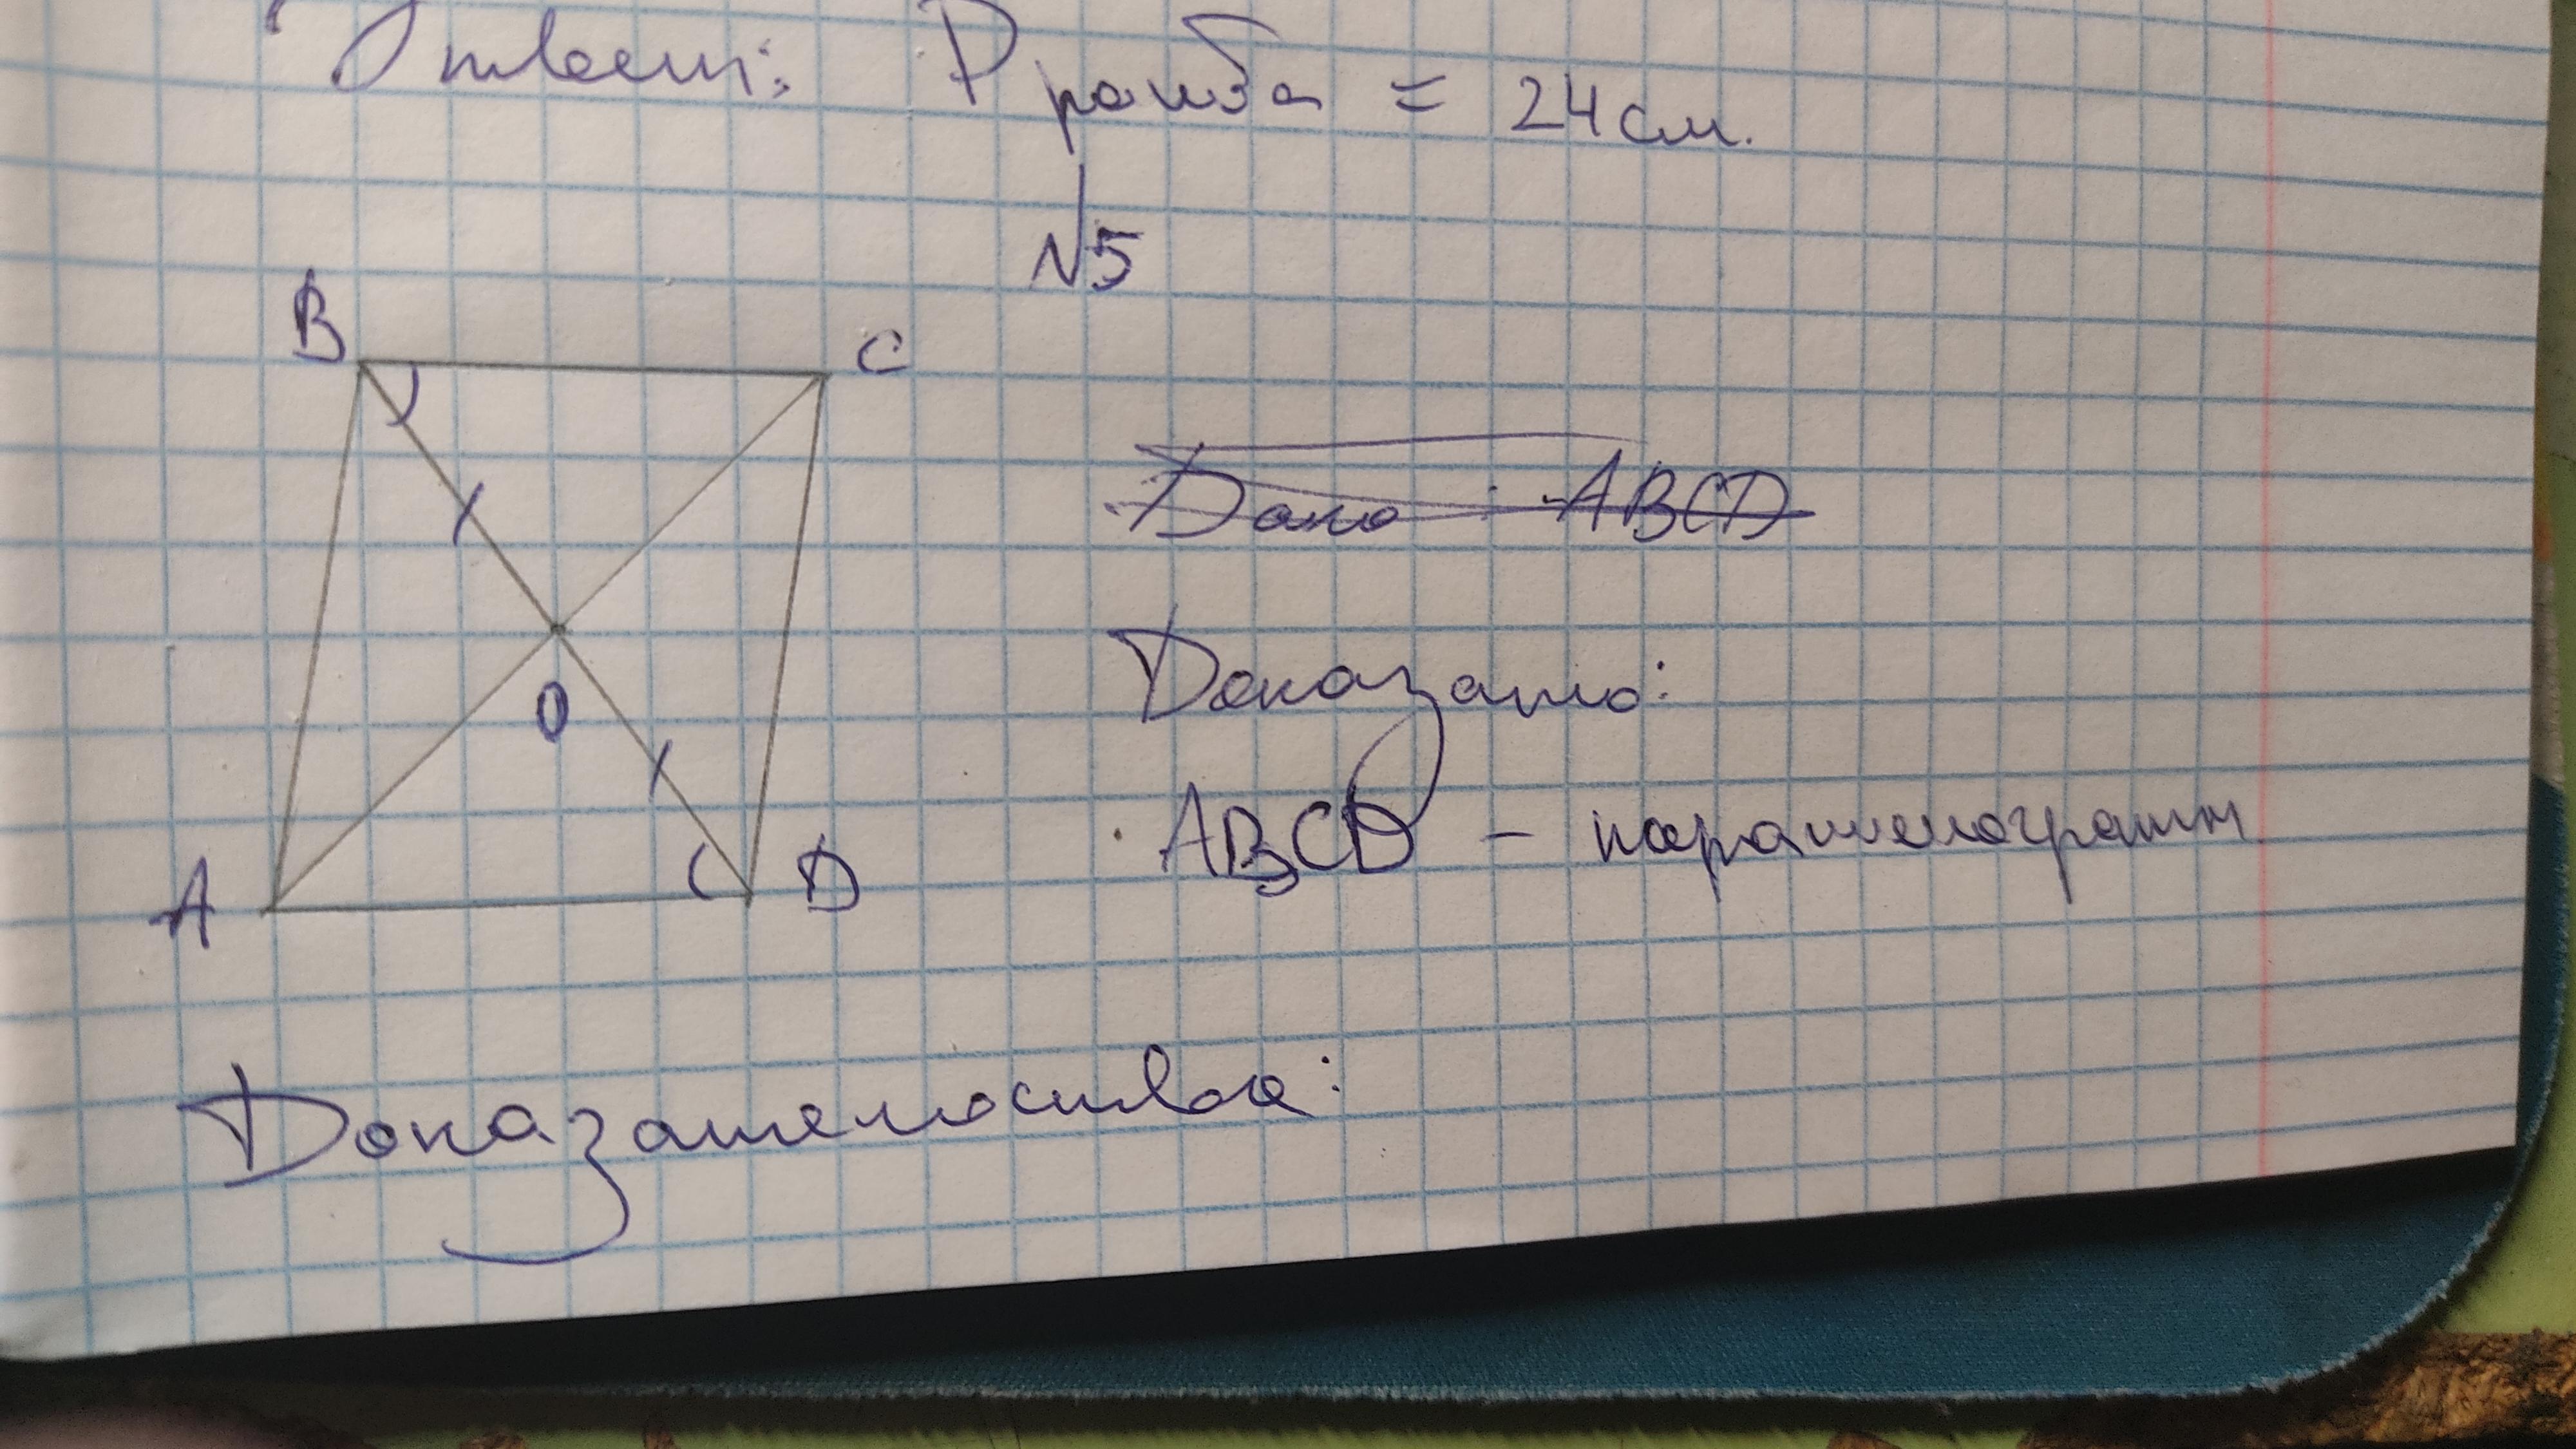 Ответ: Pромба = 24 см.
№5
B
C
Дано: ABCD
O
Доказать:
ABCD - параллелограмм
A
D
Доказательства: